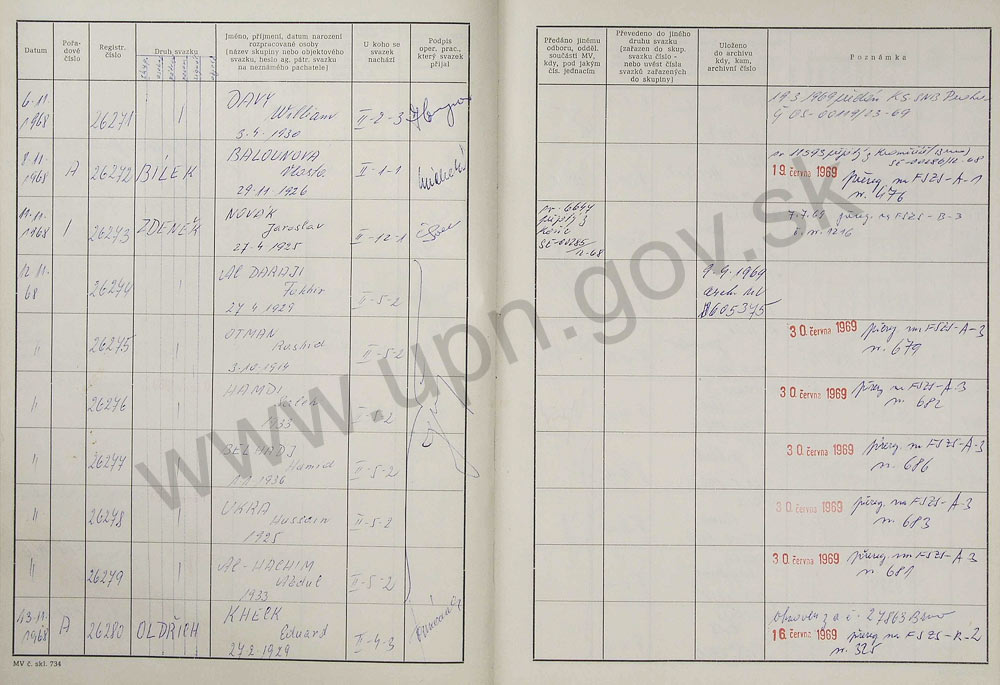 Datum
Pořa-
dové
číslo
Registr.
číslo
Druh svazku
Jméno, příjmení, datum narození
rozpracované osoby
(název skupiny nebo objektového
svazku, heslo ag. pátr. svazku
na neznámého pachatele)
U koho se
svazek
nachází
Podpis
oper. prac.,
který svazek
přijal
Předáno jinému
odboru, odděl.
součásti MV,
kdy, pod jakým
čís. jednacím
Převedeno do jiného
druhu svazku
[zařazen do skup.
svazku číslo -
nebo uvést čísla
svazků zařazených
do skupiny]
Uloženo
do archivu
kdy, kam,
archivní číslo
Poznámka
6.11.
1968
26271
DAVY
William
3.4.1930
II-2-3
19.3.1969 předán KS-SNB Praha
8.11.
1968
A
26272
BÍLEK
BALOUNOVA
Vlasta
29.11.1926
II-1-1
19. června 1969 přereg. na FSZS-A-1
n. 676
11.11.
1968
26273
ZDENĚK
NOVÁK
Jaroslav
27.4.1925
II-12-1
nr. 6644
7.7.69 přereg. na FSZS-B-3
č. n. 1216
12.11.
68
26274
AL DARAJI
Fakhir
27.4.1929
II-5-2
9.4.1969
arch. MV
26275
OTMAN
Rashid
3.10.1914
II-5-2
30. června 1969 přereg. na FSZS-A-3
n. 679
26276
HAMDI
Saleh
1933
II-5-2
30. června 1969 přereg. na FSZS-A-3
n. 682
26277
BELHADJ
Hamid
1936
II-5-2
30. června 1969 přereg. na FSZS-A-3
n. 686
26278
UKRA
Hussain
1925
II-5-2
30. června 1969 přereg. na FSZS-A-3
n. 683
26279
AL-HACHIM
Abdul
1933
II-5-2
30. června 1969 přereg. na FSZS-A-3
n. 681
13.11.
1968
A
26280
OLDŘICH
KHECK
Eduard
27.2.1929
II-4-3
27863 Brno
16. června 1969 přereg. na FSZS-K-2
n. 325
MV č. skl. 734
www.upn.gov.sk